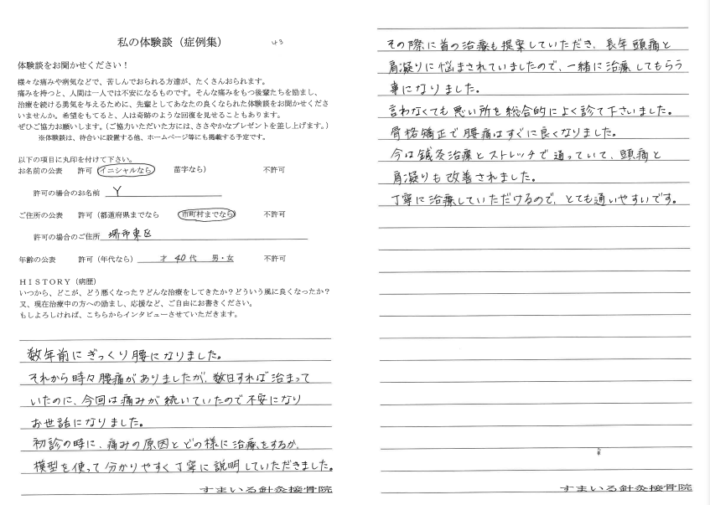 私の体験談（症例集）
体験談をお聞かせください！
様々な痛みや病気などで、苦しんでおられる方達が、たくさんおられます。
痛みを持つと、人間は一人では不安になるものです。そんな痛みをもつ後輩たちを励まし、
治療を続ける勇気を与えるために、先輩としてあなたの良くなられた体験談をお聞かせくださ
いませんか。希望をもてると、人は奇跡のような回復を見せることもあります。
ぜひご協力お願いします。（ご協力いただいた方には、ささやかなプレゼントを差し上げます。）
※体験談は、待合いに設置する他、ホームページ等にも掲載する予定です。
以下の項目に丸印を付けて下さい。
お名前の公表　許可（イニシャルなら　苗字なら）　不許可
許可の場合のお名前　Y
ご住所の公表　許可（都道府県までなら　市町村までなら）　不許可
許可の場合のご住所　堺市東区
年齢の公表　許可（年代なら）　才　40代　男・女　不許可
ＨＩＳＴＯＲＹ（病歴）
いつから、どこが、どう悪くなった？どんな治療をしてきたか？どういう風に良くなったか？
又、現在治療中の方への励まし、応援など、ご自由にお書きください。
もしよろしければ、こちらからインタビューさせていただきます。
数年前にぎっくり腰になりました。
それから時々腰痛がありましたが、数日すれば治まって
いたのに、今回は痛みが続いていたので不安になり
お世話になりました。
初診の時に、痛みの原因とどの様に治療をするか、
模型を使って分かりやすく丁寧に説明していただきました。
すまいる針灸接骨院
その際に首の治療も提案していただき、長年頭痛と
肩凝りに悩まされていましたので、一緒に治療してもらう
事になりました。
言わなくても悪い所を総合的によく診て下さいました。
骨格矯正で腰痛はすぐに良くなりました。
今は鍼灸治療とストレッチで通っていて、頭痛と
肩凝りも改善されました。
丁寧に治療していただけるので、とても通いやすいです。
すまいる針灸接骨院